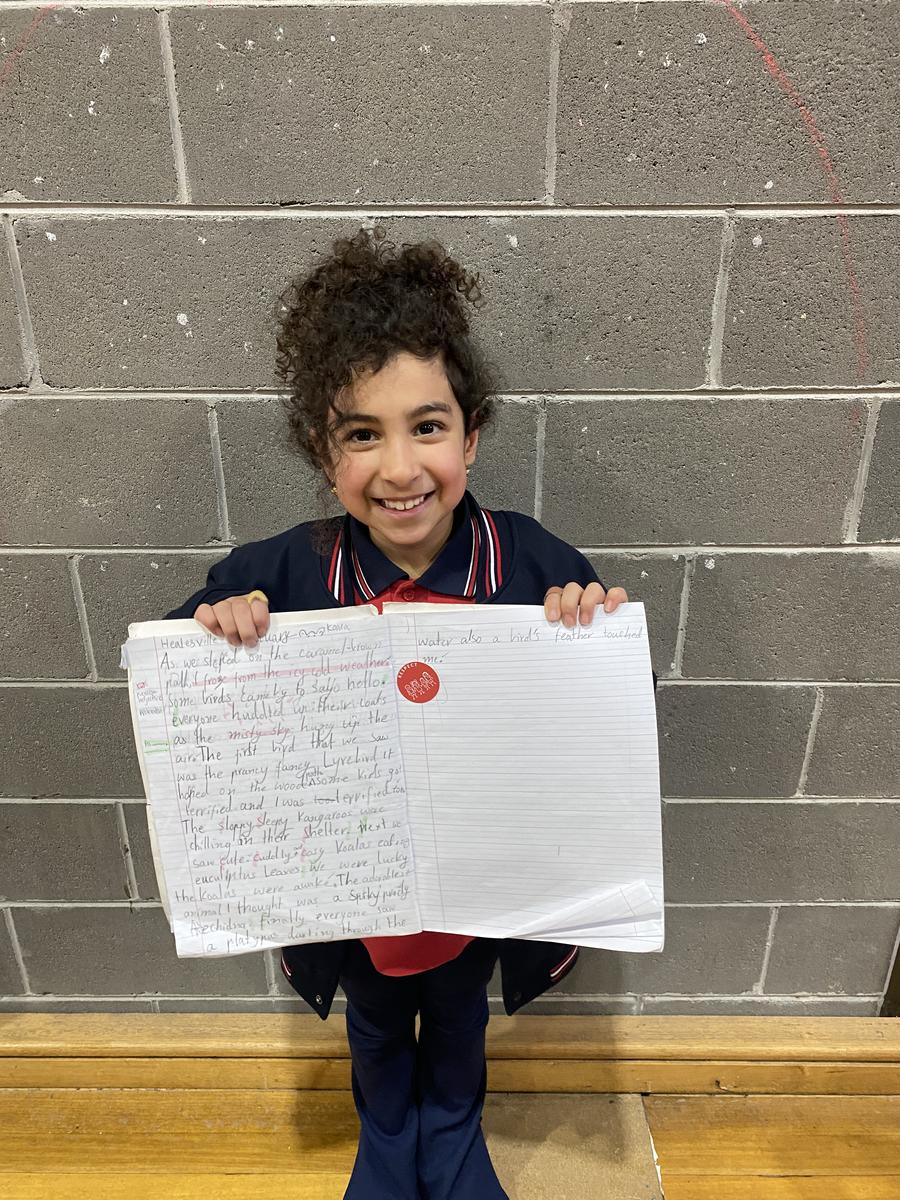 Healesville Koala
As we stefed on the caramel-brown
path, I froze from the icy cold weather.
some birds came by to say hello.
everyone huddled in their coats
as the misty sky hung up the
air. The first bird that we saw
was the prancy fancy Lyrebird it
hoped on the wood path some kids got
terrified and I was too terrified
The sloppy sleepy Kangaroos were
chilling in their shelter. Next we
saw cute cuddly cosy Koalas eating
eucaliptus leaves. We were lucky
the koalas were awake. The adorablest
animal I thought was a Spiky prickly
Aechidna. Finally everyone saw
a platypus darting through the
water also a bird's feather touched
me.
RESPECT